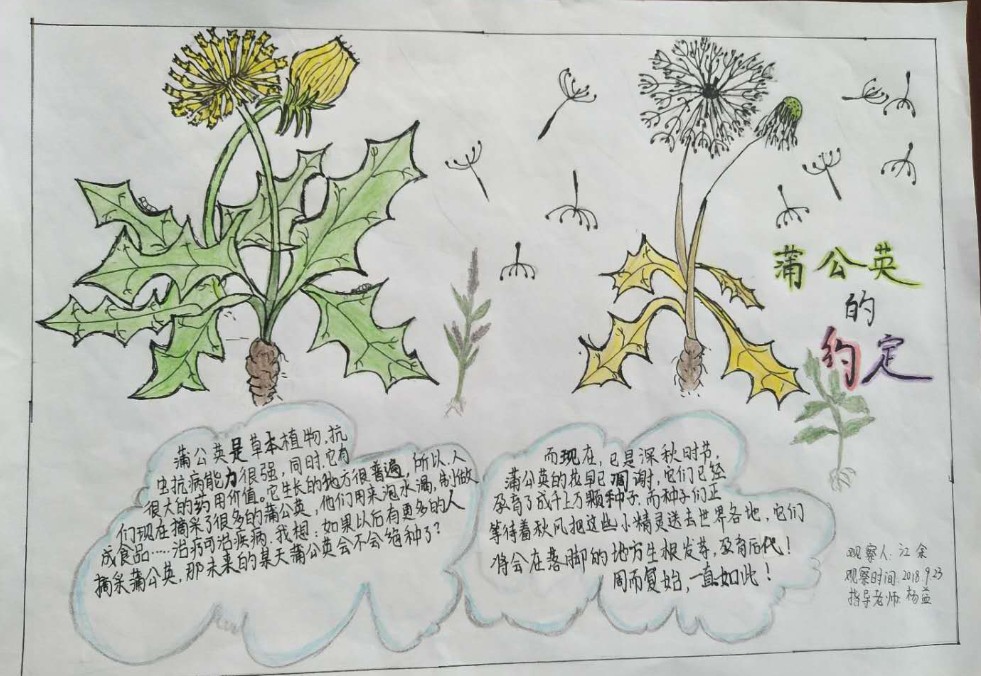 蒲公英
的
约定
蒲公英是草本植物，抗
虫抗病能力很强，同时，它有
很大的药用价值。它生长的地方很普遍，所以，人
们现在摘采了很多的蒲公英，他们用来泡水喝，制做
成食品……治疗可治疾病，我想：如果以后有更多的人
摘采蒲公英，那未来的某天蒲公英会不会绝种了？
而现在，已是深秋时节，
蒲公英的花早已凋谢，它们已经
孕育了成千上万颗种子，而种子们正
等待着秋风把这些小精灵送去世界各地，它们
将会在落脚的地方生根发芽，孕育后代！
周而复始，一直如此！
观察人：江余
观察时间：2018.9.23
指导老师：杨益